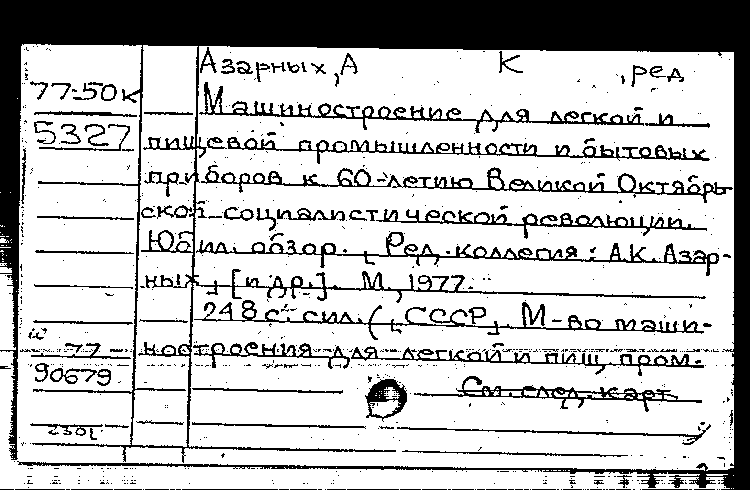 Азарных, А К , ред
77-50к
Машиностроение для легкой и
5327
пищевой промышленности и бытовых
приборов к 60-летию Великой Октябрь
ской социалистической революции.
Юбил. обзор. [Ред. коллегия: А.К. Азар-
ных] [и др.]. М., 1977.
248 с. с ил. ([СССР]. М-во маши-
77-
ностроения для легкой и пищ, пром.
90679
См. след. карт
230L